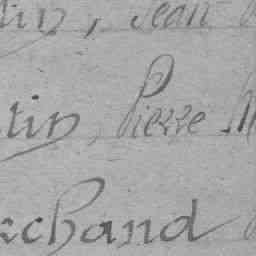 tin, Jean
tin, Pierre M
rchand